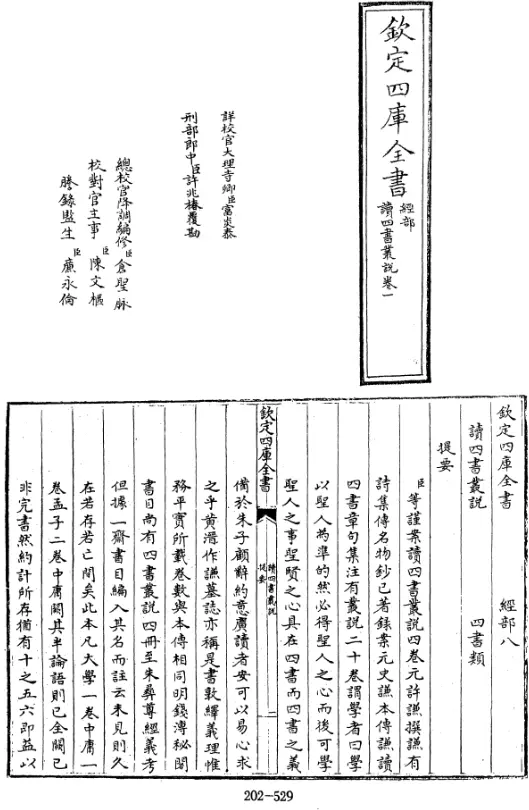 欽定四庫全書
經部
讀四書叢說卷一
詳校官大理寺卿臣富炎泰
刑部郎中臣許兆椿覆勘
總校官降調編修臣倉聖脉
校對官主事臣陳文樞
謄錄監生臣廉永倫
欽定四庫全書
經部八
讀四書叢說
四書類
提要
臣等謹案讀四書叢說四卷元許謙撰謙有
詩集傳名物鈔已著錄案元史謙本傳謙讀
四書章句集注有叢說二十卷謂學者曰學
以聖人為準的然必得聖人之心而後可學
聖人之事聖賢之心具在四書而四書之義
欽定四庫全書
讀四書叢說
提要
一
備於朱子顧辭約意廣讀者安可以易心求
之乎黃溍作謙墓誌亦稱是書敦繹義理惟
務平實所載卷數與本傳相同明錢溥秘閣
書目尚有四書叢說四冊至朱彝尊經義考
但據一齋書目編入其名而註云未見則久
在若存若亡間矣此本凡大學一卷中庸一
卷孟子二卷中庸闕其半論語則已全闕已
非完書然約計所存猶有十之五六即益以
202-529